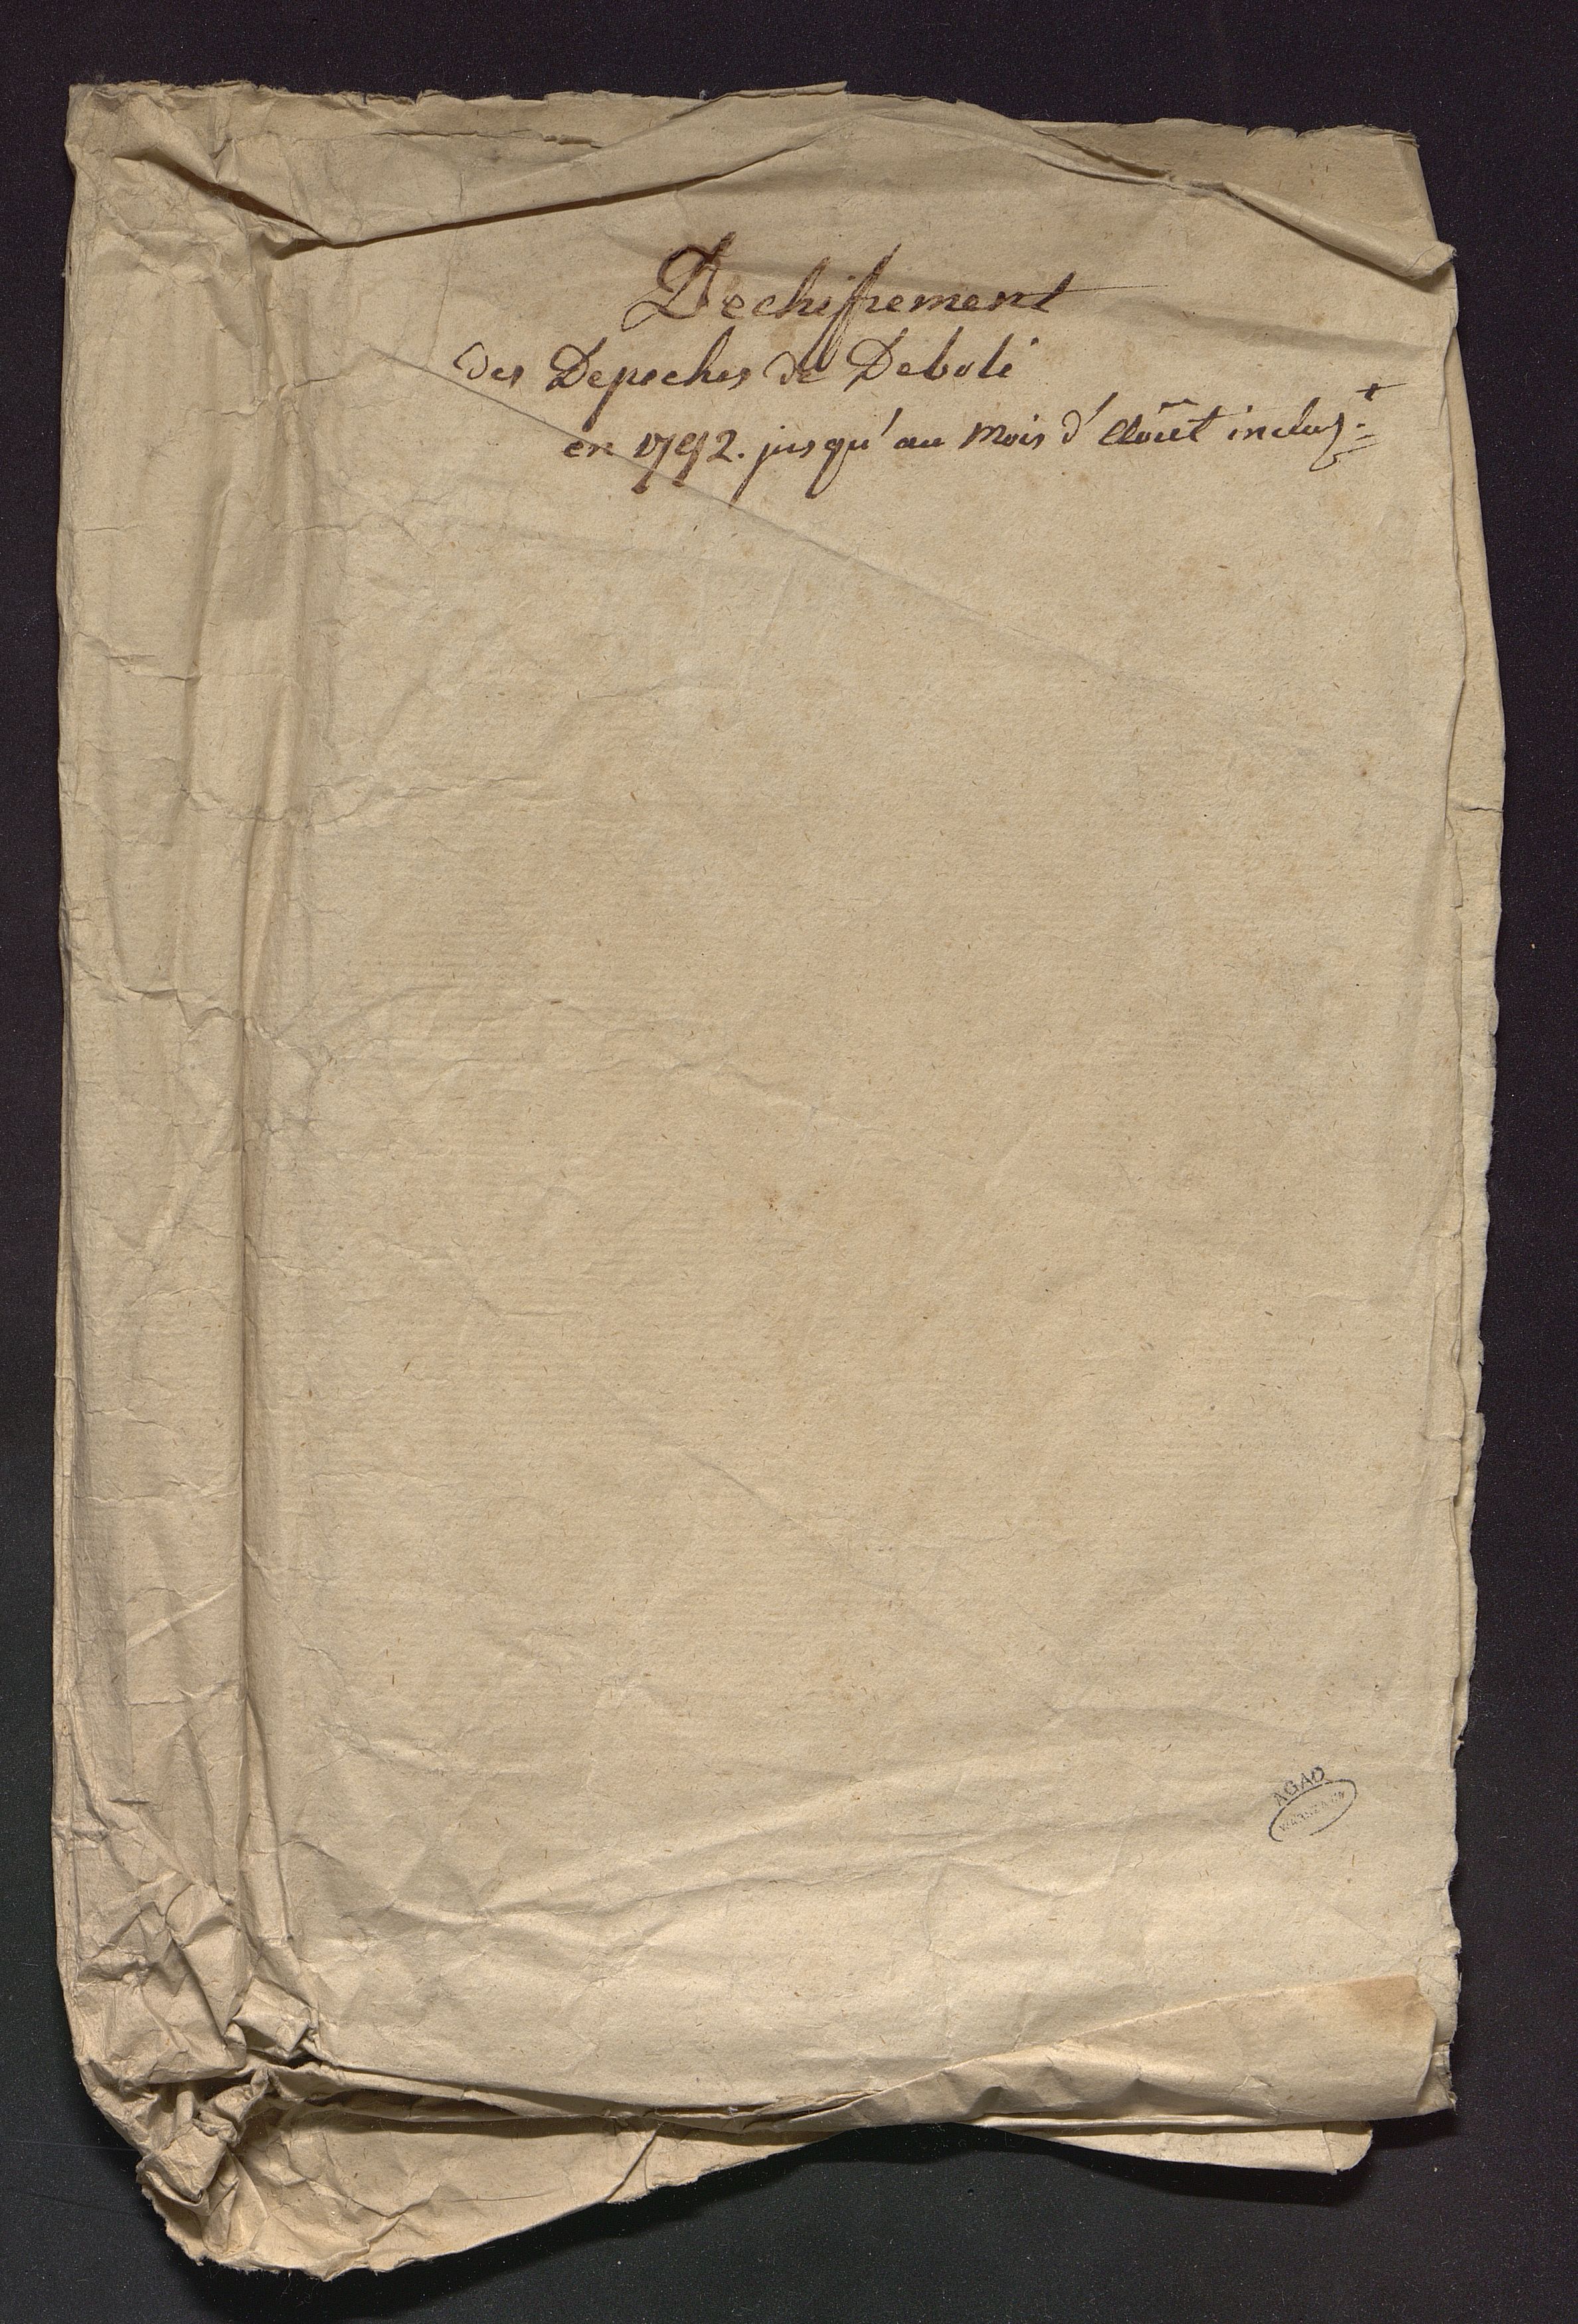 Dechifrement
des Depeches de Deboli
en 1792. jusqu'au Mois d'Août inclus.t
AGAD
WARSZAWA